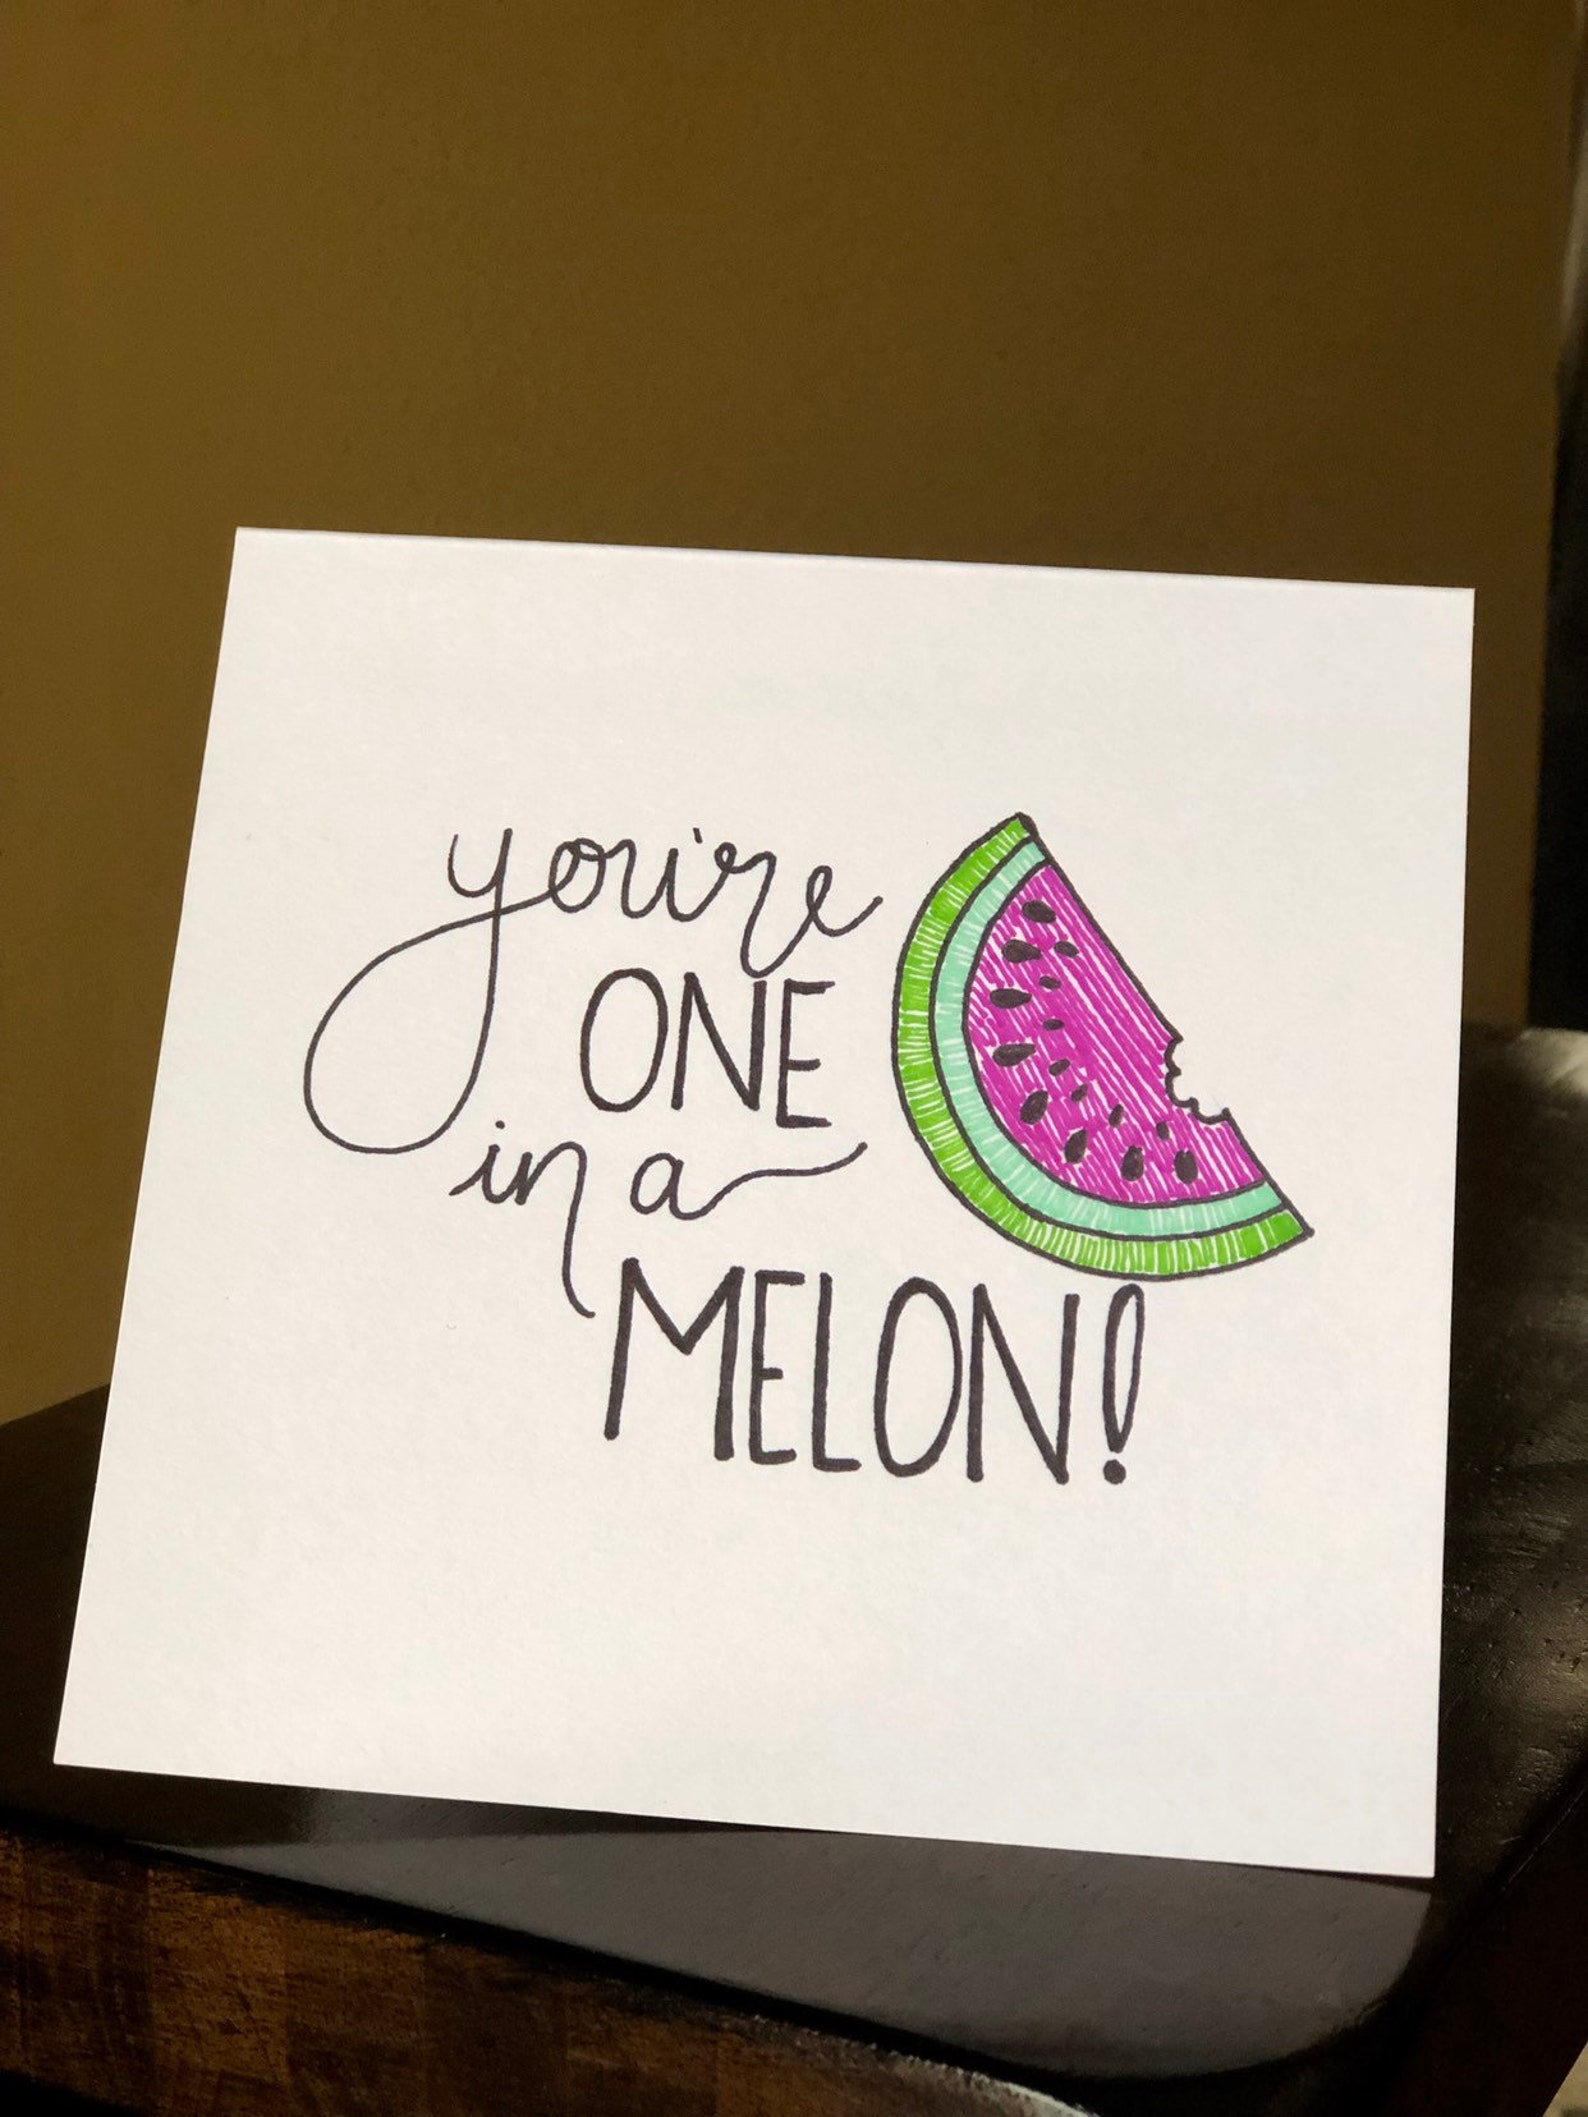 you're
ONE
in a
MELON!